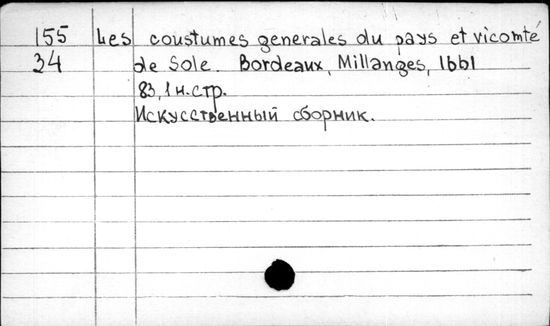 155 Les coustumes generales du pays et vicomté
34 de Sole. Bordeaux, Millanges, 1661
83, 1 н.стр.
Искусственный сборник.